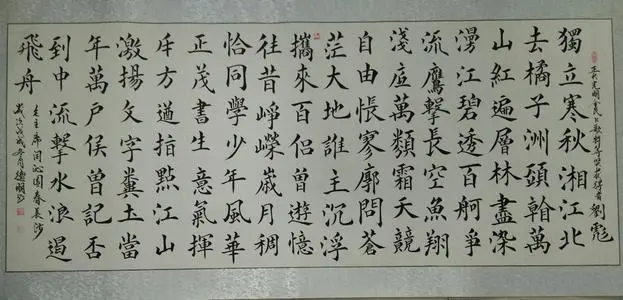 劉彪
獨立寒秋湘江北
去橘子洲頭翰萬
山紅遍層林盡染
漫江碧透百舸爭
流鷹擊長空魚翔
淺底萬類霜天競
自由悵寥廓問蒼
茫大地誰主沉浮
攜來百侶曾遊憶
往昔崢嶸嵗月稠
恰同學少年風華
正茂書生意氣揮
斥方遒指點江山
激揚文字糞土當
年萬戶侯曾記否
到中流擊水浪遏
飛舟
毛主席詞沁園春長沙